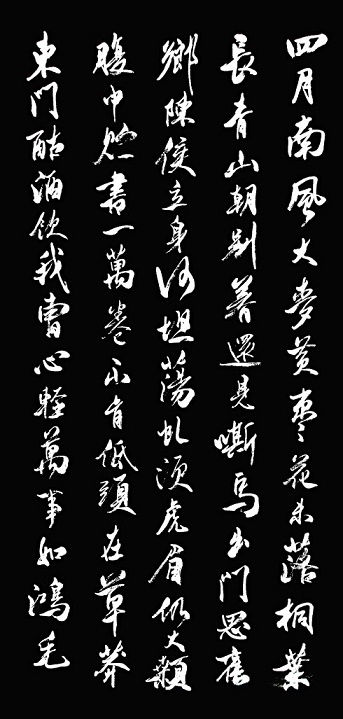 四月南風大麥黃棗花未落桐葉
長青山朝別暮還見嘶馬出門思舊
鄉陳侯立身何坦蕩虬須虎眉仍大顙
腹中貯書一萬卷不肯低頭在草莽
東門酤酒飲我曹心輕萬事如鴻毛